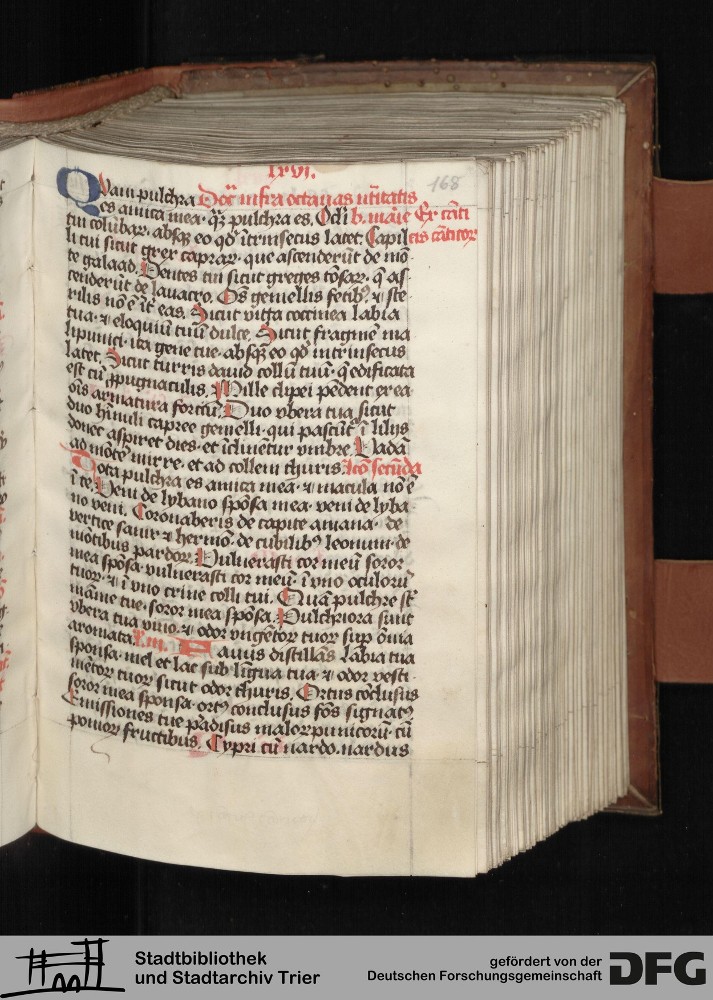 lxvi.
168
Quam pulchra Doc̄ infra octauas natiuitatis
es amica mea· qz̄ pulchra es. Ocli b. marie Ex cāti
tui colūbar. absqz eo qd' ītrinsecus latet. Capil cis cāticor
li tui sicut grex caprar. que ascenderūt de mō
te galaad. Dentes tui sicut greges tōsar. q̄ as
cenderūt de lauacro. Oēs gemellis fetibꝫ. ⁊ ste
rilis nō ē īt̄ eas. Sicut vitta coccinea labia
tua· ⁊ eloquiū tuū dulce. Sicut fragmē ma
lipunici· ita gene tue· absqz eo qd̄ intrinsecus
latet. Sicut turris dauid collū tuū· q̄ edificata
est cū ꝓpugnaculis. Mille clipei pēdent ex ea·
oīs armatura fortiū. Duo vbera tua sicut
duo hinuli capree gemelli· qui pascūt̄ ī lilijs
donec aspiret dies· et īclinētur vmbre. Vadā
ad mōtē mirre· et ad collem thuris. Lcō secūda
Tota pulchra es amica mea· ⁊ macula nō ē
ī te. Veni de lybano spōsa mea· veni de lyba
no veni. Coronaberis de capite amana· de
vertice sanir ⁊ hermō· de cubilibꝫ leonum· de
mōtibus pardor. Vulnerasti cor meū soror
mea spōsa· vulnerasti cor meū· ī vno oculorū
tuor· ⁊ ī vno crine colli tui. Quā pulchre sūt
māme tue· soror mea spōsa. Pulchriora sunt
vbera tua vino· ⁊ odor vngētor tuor sup ōmīa
aromata. L. iii. Fauus distillās labia tua
sponsa· mel et lac sub lingua tua· ⁊ odor vesti
mētor tuor sicut odor thuris. Ortus cōclusus
soror mea sponsa· ortꝫ conclusus fōs signatꝫ
Emissiones tue padisus malor punicorū· cū
pomor fructibus. Cypri cū nardo. nardus
Stadtbibliothek
und Stadtarchiv Trier
gefördert von der
Deutschen Forschungsgemeinschaft
DFG